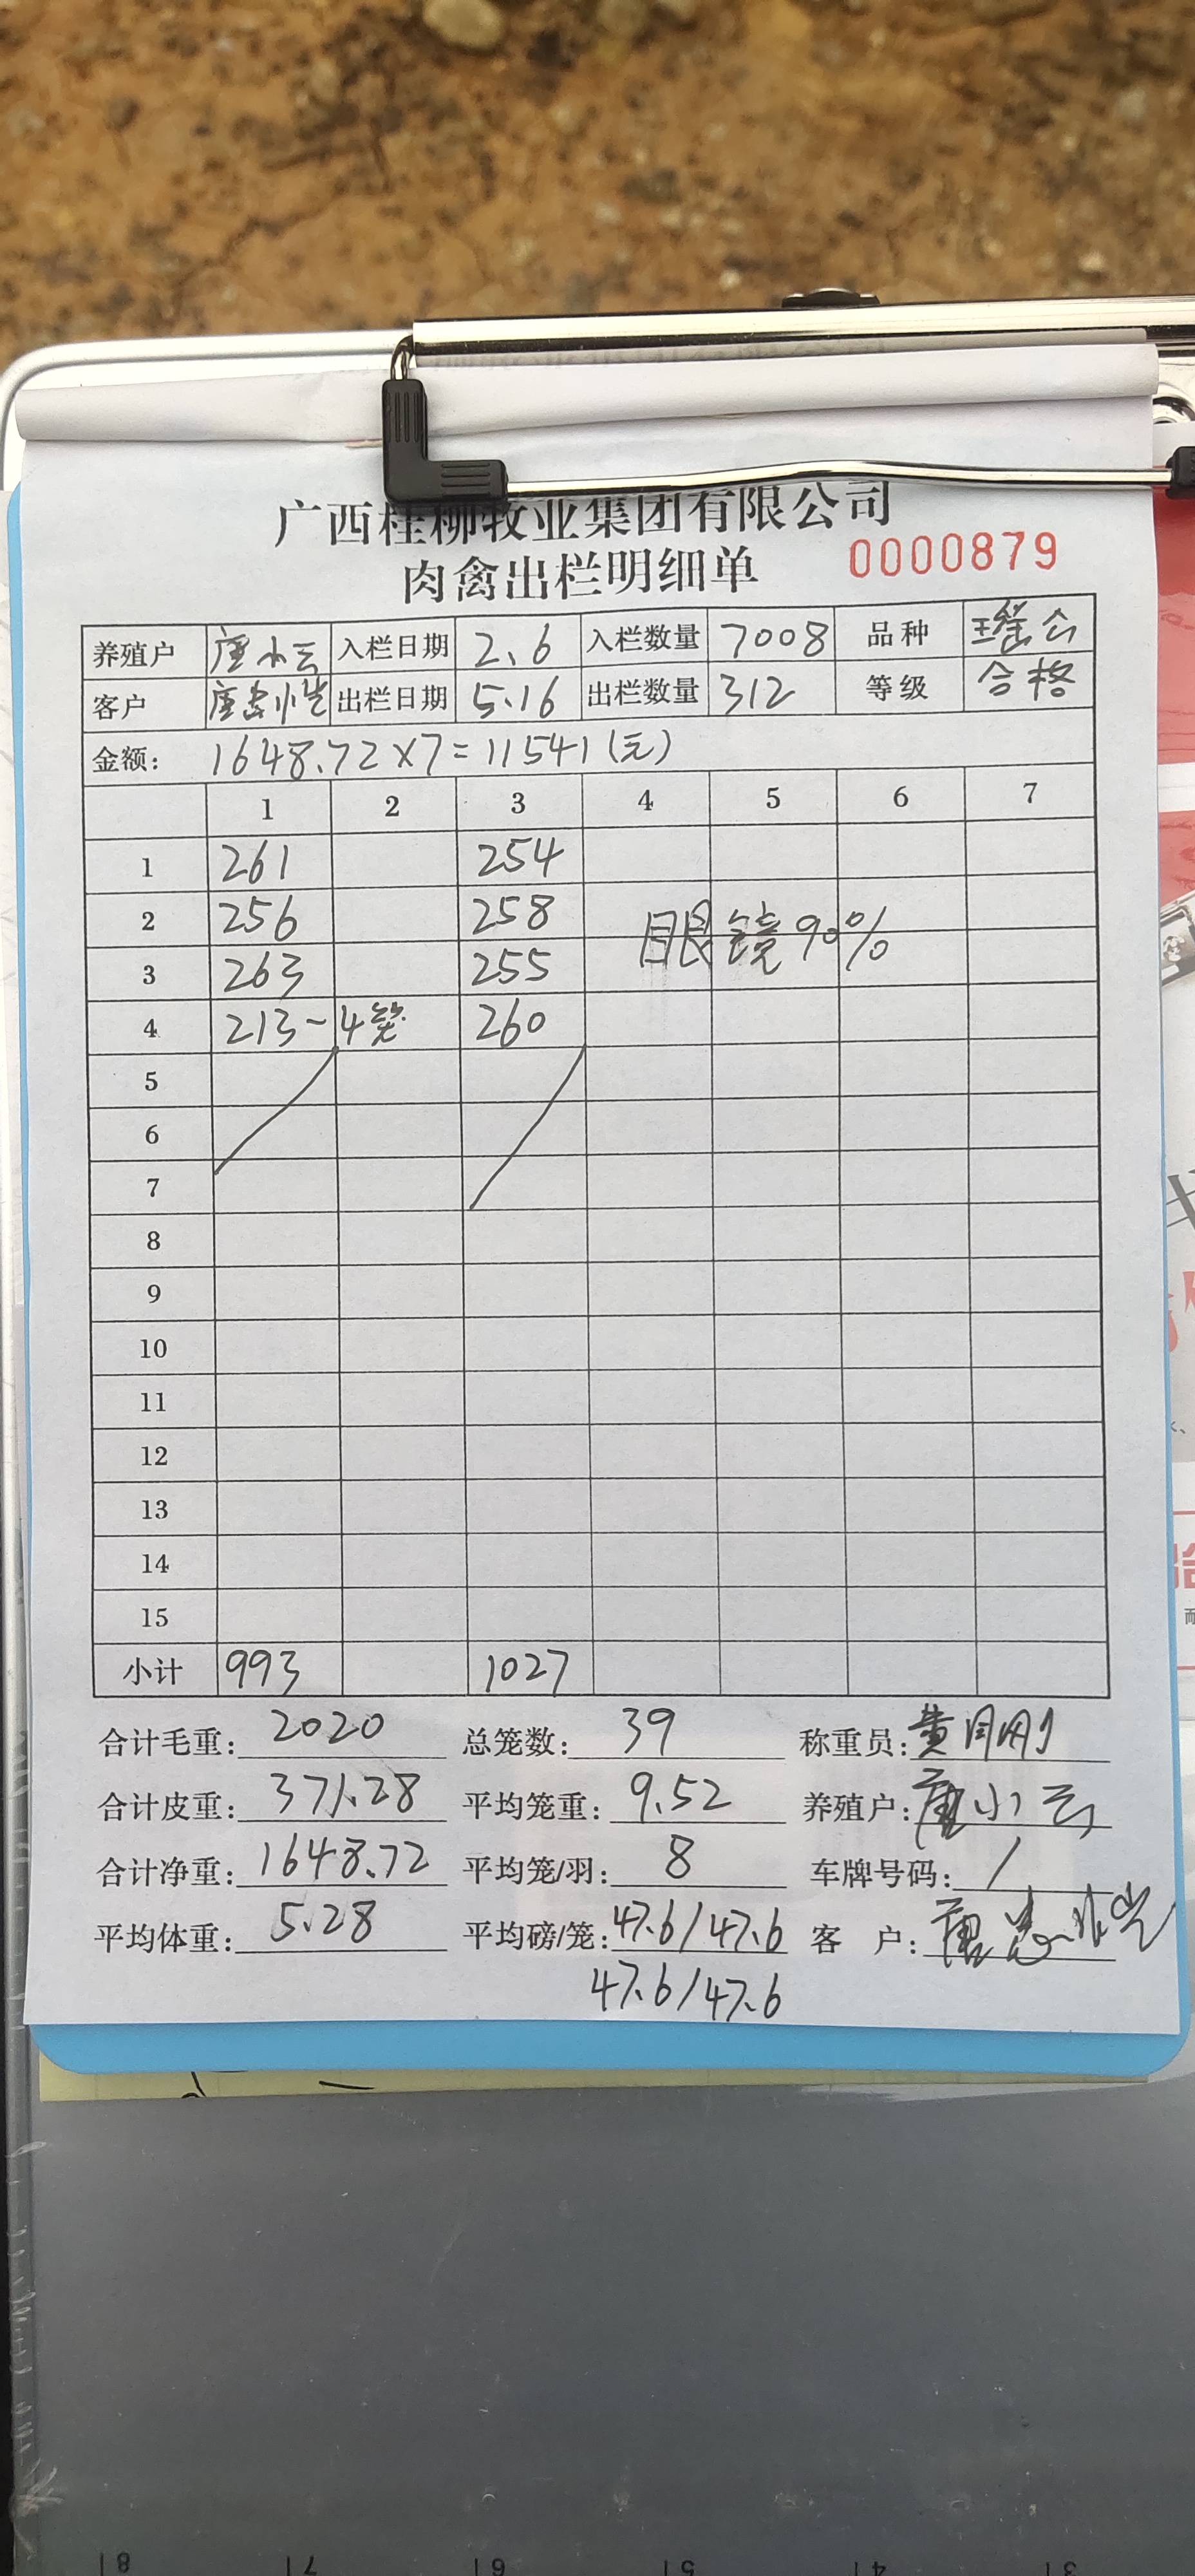 广西桂柳牧业集团有限公司
肉禽出栏明细单 0000879
养殖户 唐小云 入栏日期 2.6 入栏数量 7008 品种 瑶公
客户 出栏日期 5.16 出栏数量 312 等级 合格
金额: 1648.72×7=11541(元)
1 2 3 4 5 6 7
1 261 254
2 256 258
眼镜90%
3 263 255
4 213-4笼 260
5
6
7
8
9
10
11
12
13
14
15
小计 993 1027
合计毛重: 2020 总笼数: 39 称重员:
合计皮重: 371.28 平均笼重: 9.52 养殖户: 唐小云
合计净重: 1648.72 平均笼/羽: 8 车牌号码: /
平均体重: 5.28 平均磅/笼: 47.6/47.6 客 户:
47.6/47.6
81 71 61 51 41 31